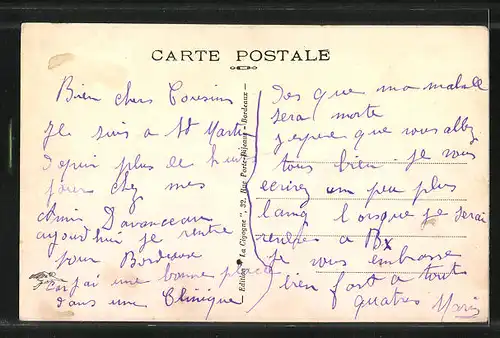 CARTE POSTALE
Bien chers Cousins
Je suis a St Martin
depuis plus de huit
jours chez mes
amis Davanceau
aujourd'hui je rentre
pour Bordeaux
car j'ai une bonne place
dans une Clinique
Editions " La Cigogne ", 32, Rue Porte-Dijeaux - Bordeaux -
des que ma malade
sera morte
j'espere que vous allez
tous bien je vous
ecrirez un peu plus
lang lorsque je serai
rendres a Bx
je vous embrasse
bien fort a tout
quatres Maris